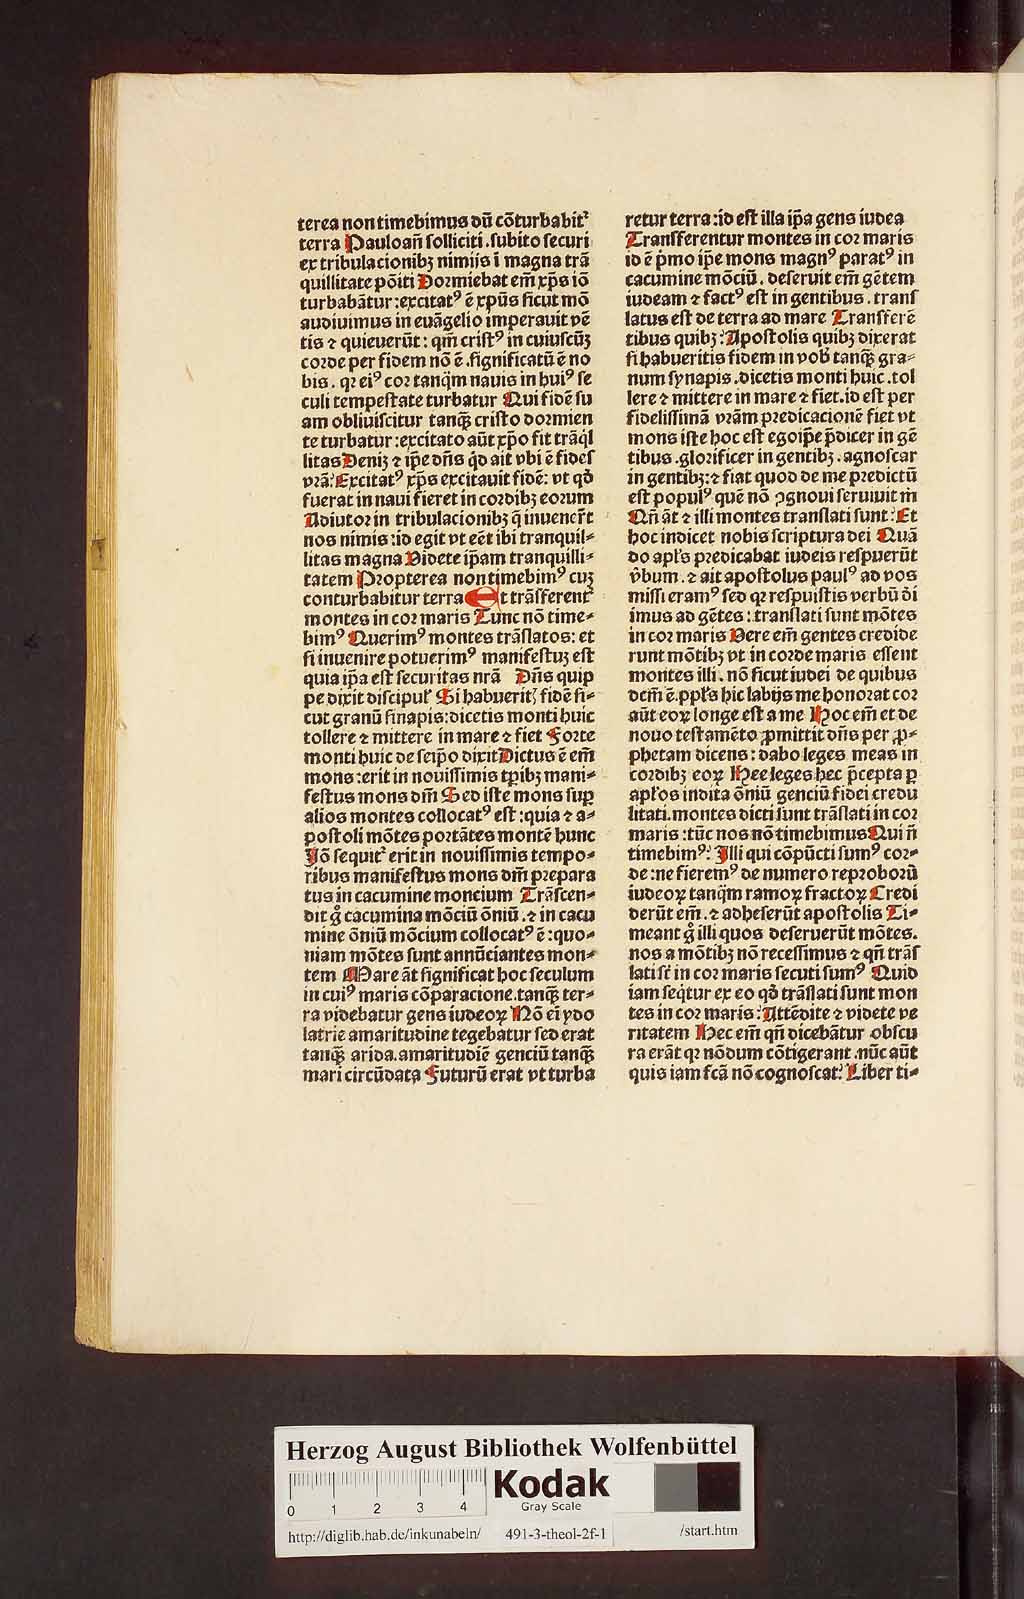 terea non timebimus dū cōturbabitᷣ
terra Pauloañ solliciti .subito securi
ex tribulacionibꝫ nimijs ī magna trā
quillitate pōiti Dormiebat em̄ xp̄s iō
turbabātur :excitatꝰ ē xpūs sicut mō
audiuimus in euāgelio imperauit vē
tis ⁊ quieuerūt : qm̄ cristꝰ in cuiuscūꝫ
corde per fidem nō ē .significatū ē no
bis . qꝛ eiꝰ cor tanqm̄ nauis in huiꝰ se
culi tempestate turbatur Qui fidē su
am obliuiscitur tanqꝫ cristo dormien
te turbatur :excitato aūt xp̄o fit trāql̄
litas Deniꝫ ⁊ ip̄e dn̄s qd̄ ait vbi ē fides
vr̄a: Excitatꝰ xp̄s excitauit fidē: vt qd̄
fuerat in naui fieret in cordibꝫ eorum
Adiutor in tribulacionibꝫ q̄ inuener̄t
nos nimis :id egit vt eēt ibi tranquil⸗
litas magna Videte ip̄am tranquilli⸗
tatem Propterea non timebimꝰ cuꝫ
conturbabitur terra Et trāsferentᷣ
montes in cor maris Tunc nō time⸗
bimꝰ Querimꝰ montes trāslatos: et
si inuenire potuerimꝰ manifestuꝫ est
quia ip̄a est securitas nr̄a Dn̄s quip
pe dixit discipul̕ Si habueritꝭ fidē si⸗
cut granū sinapis:dicetis monti huic
tollere ⁊ mittere in mare ⁊ fiet Forte
monti huic de seip̄o dixit Dictus ē em̄
mons :erit in nouissimis tp̄ibꝫ mani⸗
festus mons dm̄ Sed iste mons suꝑ
alios montes collocatꝰ est :quia ⁊ a⸗
postoli mōtes portātes montē hunc
Iō sequitᷣ erit in nouissimis tempo⸗
ribus manifestus mons dm̄ prepara
tus in cacumine moncium Trāscen⸗
dit gͦ cacumina mōciū ōniū .⁊ in cacu
mine ōniū mōcium collocatꝰ ē :quo⸗
niam mōtes sunt annūciantes mon⸗
tem Mare āt significat hoc seculum
in cuiꝰ maris cōparacione.tanqꝫ ter⸗
ra videbatur gens iudeoꝝ Nō ei ydo
latrie amaritudine tegebatur sed erat
tanqꝫ arida.amaritudiē genciū tanqꝫ
mari circūdata Futurū erat vt turba
retur terra :id est illa ip̄a gens iudea
Transferentur montes in cor maris
id ē p̄mo ip̄e mons magnꝰ paratꝰ in
cacumine mōciū . deseruit em̄ gētem
iudeam ⁊ factꝰ est in gentibus . trans
latus est de terra ad mare Transferē
tibus quibꝫ: Apostolis quibꝫ dixerat
si habueritis fidem in vob̄ tanqꝫ gra⸗
num synapis .dicetis monti huic .tol
lere ⁊ mittere in mare ⁊ fiet.id est per
fidelissimā vr̄am predicacionē fiet vt
mons iste hoc est egoip̄e p̄dicer in gē
tibus .glorificer in gentibꝫ . agnoscar
in gentibꝫ:⁊ fiat quod de me predictū
est populꝰ quē nō ꝯgnoui seruiuit m̄
Qn̄ āt ⁊ illi montes translati sunt: Et
hoc indicet nobis scriptura dei Quā
do apl̄s predicabat iudeis respuerūt
v̄bum .⁊ ait apostolus paulꝰ ad vos
missi eramꝰ sed qꝛ respuistis verbū d̄i
imus ad gētes : translati sunt mōtes
in cor maris Vere em̄ gentes credide
runt mōtibꝫ vt in corde maris essent
montes illi . nō sicut iudei de quibus
dcm̄ ē.ppl̄s hic labijs me honorat cor
aūt eoꝝ longe est a me Hoc em̄ et de
nouo testamēto ꝓmittit dn̄s per ꝓ⸗
phetam dicens : dabo leges meas in
cordibꝫ eoꝝ Hee leges hec p̄cepta ꝑ
apl̄os indita ōniū genciū fidei credu
litati.montes dicti sunt trāslati in cor
maris :tūc nos nō timebimus Qui n̄
timebimꝰ: Illi qui cōpūcti sumꝰ cor⸗
de :ne fieremꝰ de numero reproborū
iudeoꝝ tanqm̄ ramoꝝ fractoꝝ Credi
derūt em̄ .⁊ adheserūt apostolis Ti⸗
meant gͦ illi quos deseruerūt mōtes.
nos a mōtibꝫ nō recessimus ⁊ qn̄ trās
lati sr̄t in cor maris secuti sumꝰ Quid
iam seq̄tur ex eo qd̄ trāslati sunt mon
tes in cor maris: Attēdite ⁊ videte ve
ritatem Hec em̄ qn̄ dicebātur obscu
ra erāt qꝛ nōdum cōtigerant .nūc aūt
quis iam fcā nō cognoscat: Liber ti⸗
Herzog August Bibliothek Wolfenbüttel
0 1 2 3 4
Kodak
Gray Scale
http://diglib.hab.de/inkunabeln/ 491-3-theol-2f-1 /start.htm